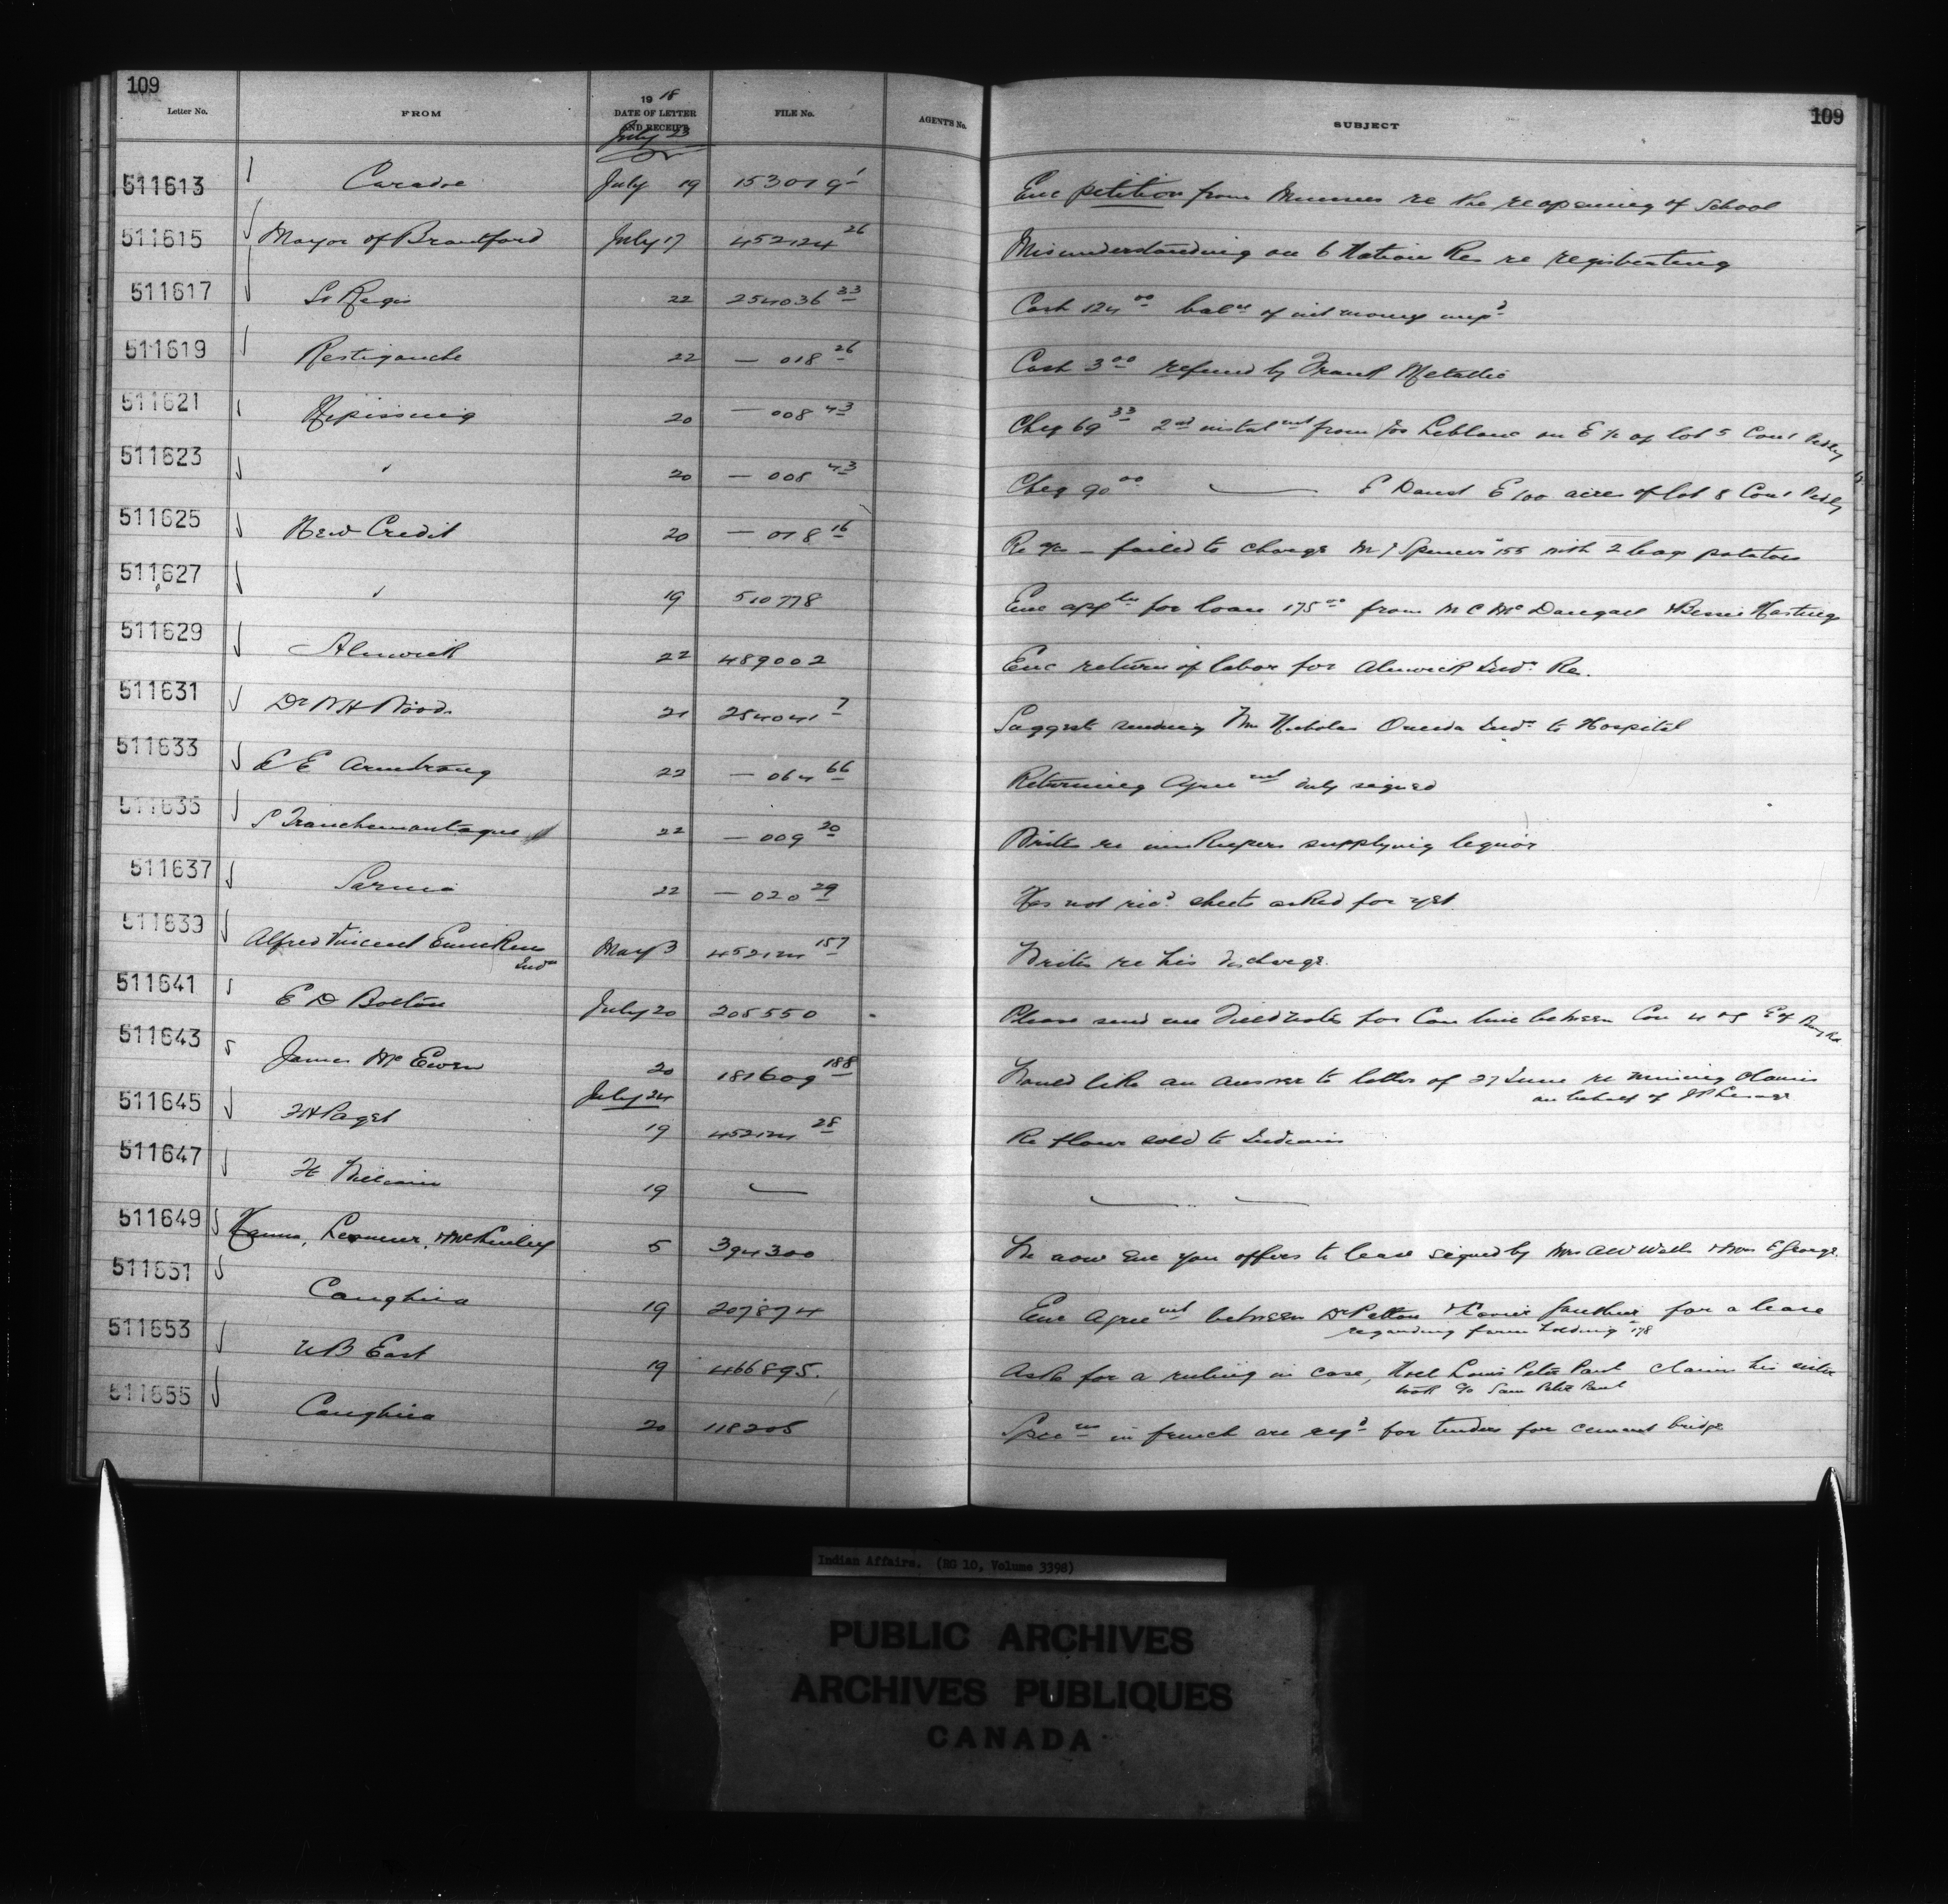 109
109
Letter No. FROM 19 18 DATE OF LETTER AND RECEIPT FILE No. AGENTS No. SUBJECT
July 23
511613 Caradoc July 19 153019 1 Enc petition from Muncees re the reopening of School
511615 Mayor of Brantford July 17 452124 26 Misunderstanding on 6 Nation Res re registrating
511617 St Regis 22 254036 33 Cash 124 00 balce of int money
511619 Restigouche 22 — 018 26 Cash 3 00 refund by Frank Metallic
511621 Nipissing 20 — 008 43 Cheq 69 33 2nd instalmt from Jos Leblanc on E ½ of lot 5 Con 1 Pedley
511623 " 20 — 008 43 Cheq 90 00 — E E 100 acres of lot 8 Con 1 Pedley
511625 New Credit 20 — 018 16 Re a/c — failed to charge Spencer 155 with 2 bag potatoes
511627 " 19 510778 Enc appln for loan 175 00 from M C McDougall & Bessie Hastings
511629 Alnwick 22 489002 Enc return of labor for Alnwick Indn Re.
511631 Dr W H Wood 21 254041 7 Suggests sending Nicholas Oneida Indn to Hospital
511633 E Armstrong 22 — 064 66 Returning Agreemt duly signed
511635 Tranchemontagne 22 — 009 20 Writes re innkeepers supplying liquor
511637 Sarnia 22 — 020 29 Has not recd sheets asked for yet
511639 Alfred Vincent May 3 452124 157 Writes re his discharge.
Indn
511641 E D Bolton July 20 205550 Please send me Fieldnotes for Con line between Con 4 & 5 E of Bury Rd
511643 James McEwen 20 181609 188 Would like an answer to letter of 27 June re mining claims
on behalf of
July 24
511645 F H Paget 19 452124 28 Re flour sold to Indians
511647 19 — — —
511649 Hanna, LeSueur, & McKinley 5 394300 We now enc you offers to lease signed by Mrs A W Wells & Mrs E George.
511651 Caughna 19 207874 Enc Agreemt between Dr Patton & Gauthier for a lease
regarding farm holding # 178
511653 W B East 19 466895. Asks for a ruling in case, Noel Louis Peter Paul claims his sister
Sam Peter Paul
511655 Caughna 20 118205 Specns in french are reqd for tenders for cement bridge
Indian Affairs. (RG 10, Volume 3398)
PUBLIC ARCHIVES
ARCHIVES PUBLIQUES
CANADA